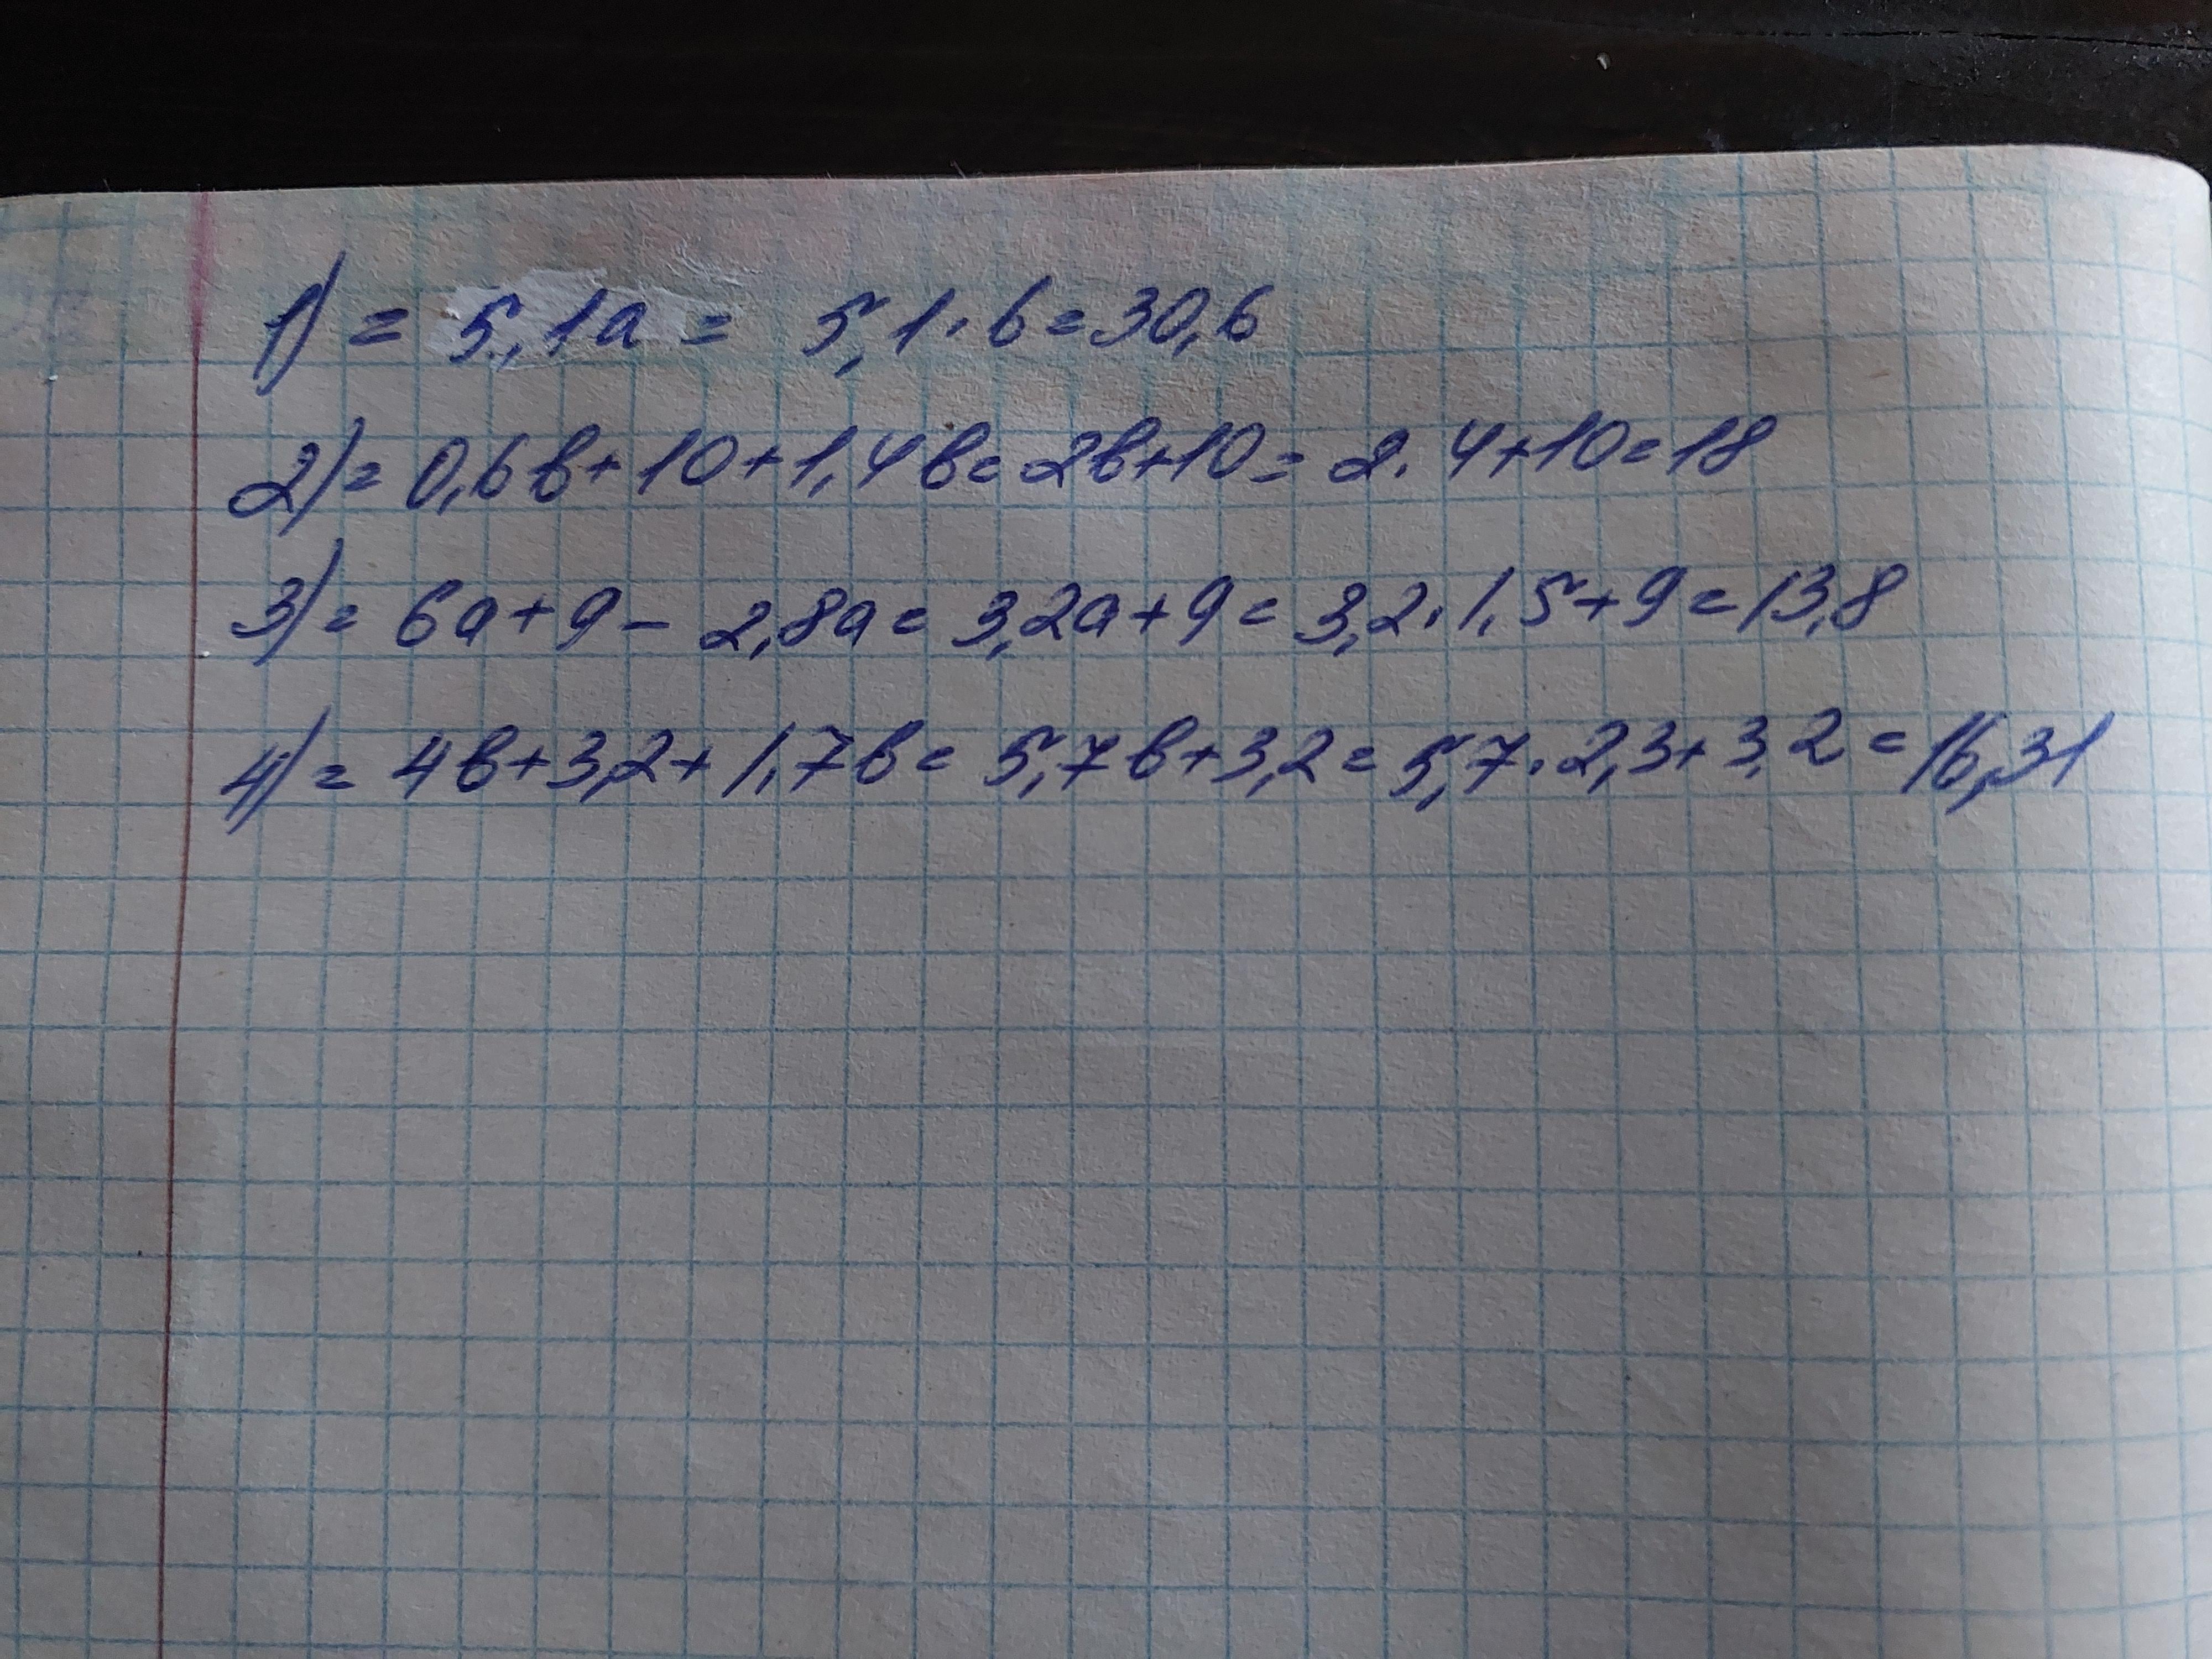 1) = 5,1a = 5,1·6=30,6
2)= 0,6b+10+1,4b=2b+10=2·4+10=18
3)= 6a+9-2,8a=3,2a+9=3,2·1,5+9=13,8
4)= 4b+3,2+1,7b=5,7b+3,2=5,7·2,3+3,2=16,31